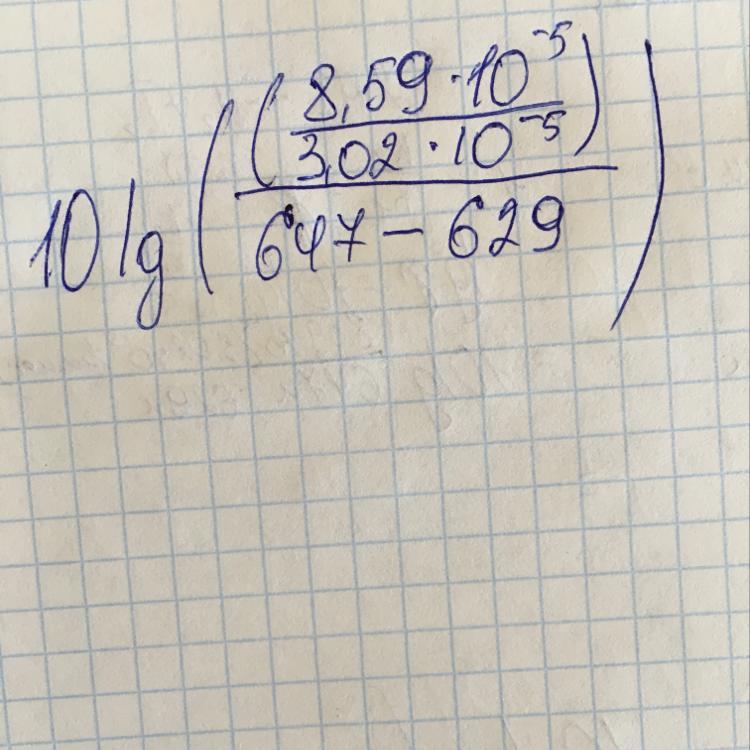 10 lg ( ( 8,59 · 10⁻⁵ / 3,02 · 10⁻⁵ ) / 647 − 629 )